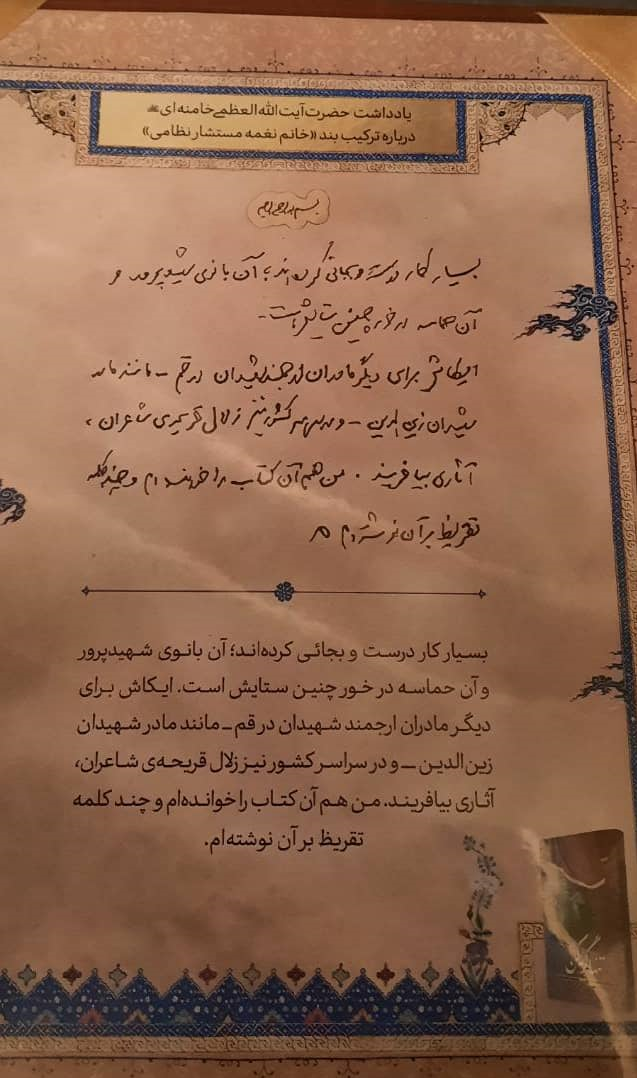 یادداشت حضرت آیت‌الله العظمی خامنه‌ای
درباره ترکیب بند «خانم نغمه مستشار نظامی»
بسم الله الرحمن الرحیم
بسیار کار درست و بجائی کرده‌اند؛ آن بانوی شهیدپرور و
آن حماسه در خور چنین ستایش است.
ایکاش برای دیگر مادران ارجمند شهیدان در قم ـ مانند مادر
شهیدان زین الدین ـ و در سراسر کشور نیز زلال قریحه‌ی شاعران،
آثاری بیافریند. من هم آن کتاب را خوانده‌ام و چند کلمه
تقریظ بر آن نوشته‌ام
بسیار کار درست و بجائی کرده‌اند؛ آن بانوی شهیدپرور
و آن حماسه در خور چنین ستایش است. ایکاش برای
دیگر مادران ارجمند شهیدان در قم ـ مانند مادر شهیدان
زین‌الدین ـ و در سراسر کشور نیز زلال قریحه‌ی شاعران،
آثاری بیافریند. من هم آن کتاب را خوانده‌ام و چند کلمه
تقریظ بر آن نوشته‌ام.